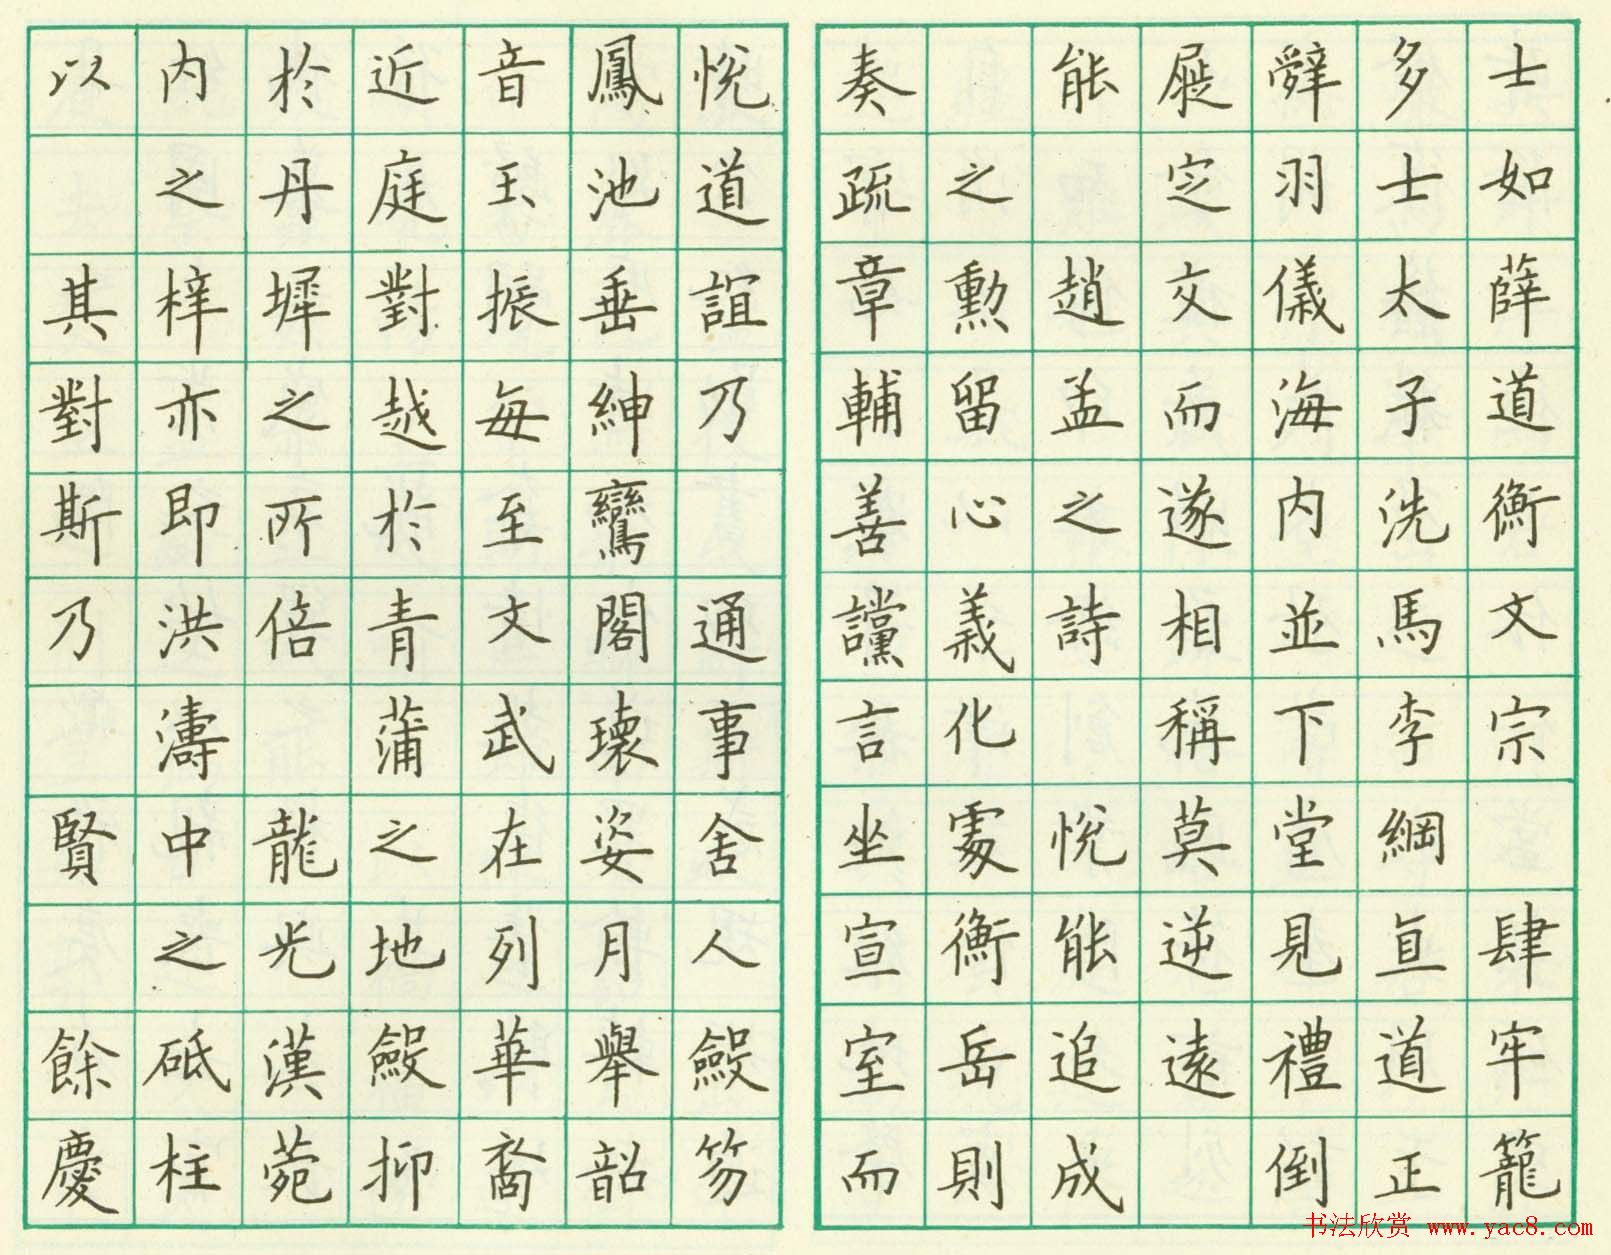 士如薛道衡文宗肆牢籠
多士太子洗馬李綱直道正
辭羽儀海内並下堂見禮倒
屣定交而遂相稱莫逆遠
能趙孟之詩悅能追成
之勲留心義化處衡岳則
奏疏章輔善讜言坐宣室而
悅道誼乃通事舍人敻笏
鳳池垂紳鸞閣瓌姿月舉韶
音玉振每至文武在列華裔
近庭對越於青蒲之地敻抑
於丹墀之所倍龍光漢菀
内之梓亦即洪濤中之砥柱
以其對斯乃賢餘慶
书法欣赏 www.yac8.com